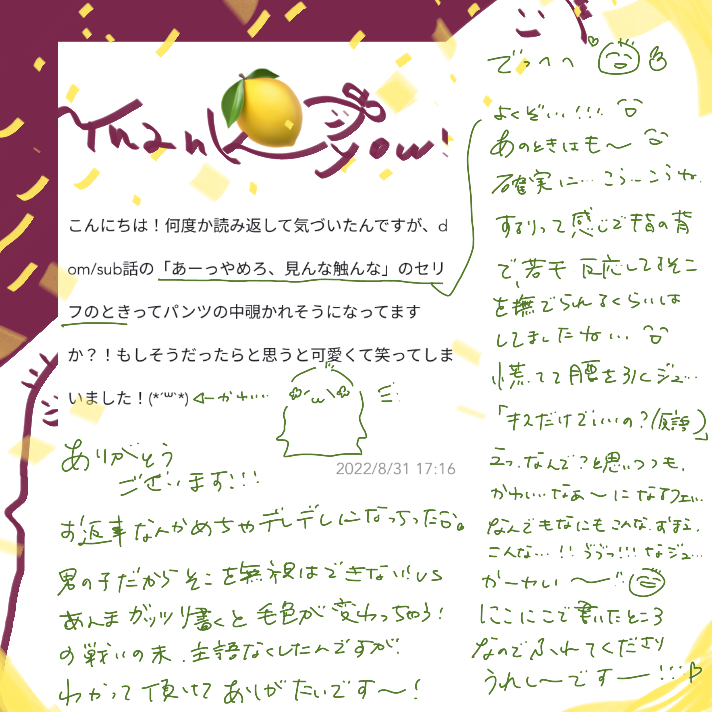 Thank you!
こんにちは！何度か読み返して気づいたんですが、d
om/sub話の「あーっやめろ、見んな触んな」のセリ
フのときってパンツの中覗かれそうになってます
か？！もしそうだったらと思うと可愛くて笑ってしま
いました！(*´꒳`*)
←かわいい
2022/8/31 17:16
ありがとう
ございます!!!
お返事なんかめちゃデレデレになっちった
男の子だからそこを無視はできない!VS
あんまガッツリ書くと毛色が変わっちゃう!
の戦いの末、主語なくしたんですが
わかって頂けてありがたいです〜!
でっへへ
よくぞ!!!
あのときはも〜
確実に…こう…こうね
するりって感じで指の背
で、若干反応してるそこ
を撫でられるくらいは
してましたね…
慌てて腰を引くジュ…
「キスだけでいいの?(仮語)」
えっ、なんで?と思いつつも、
かわい…なぁ〜になるフェ…
なんでもなにもこんな、
こんな…!!ううっ!!!なジュ…
かーわいい〜
にこにこで書いたところ
なのでふれてくださり
うれし〜です〜!!!